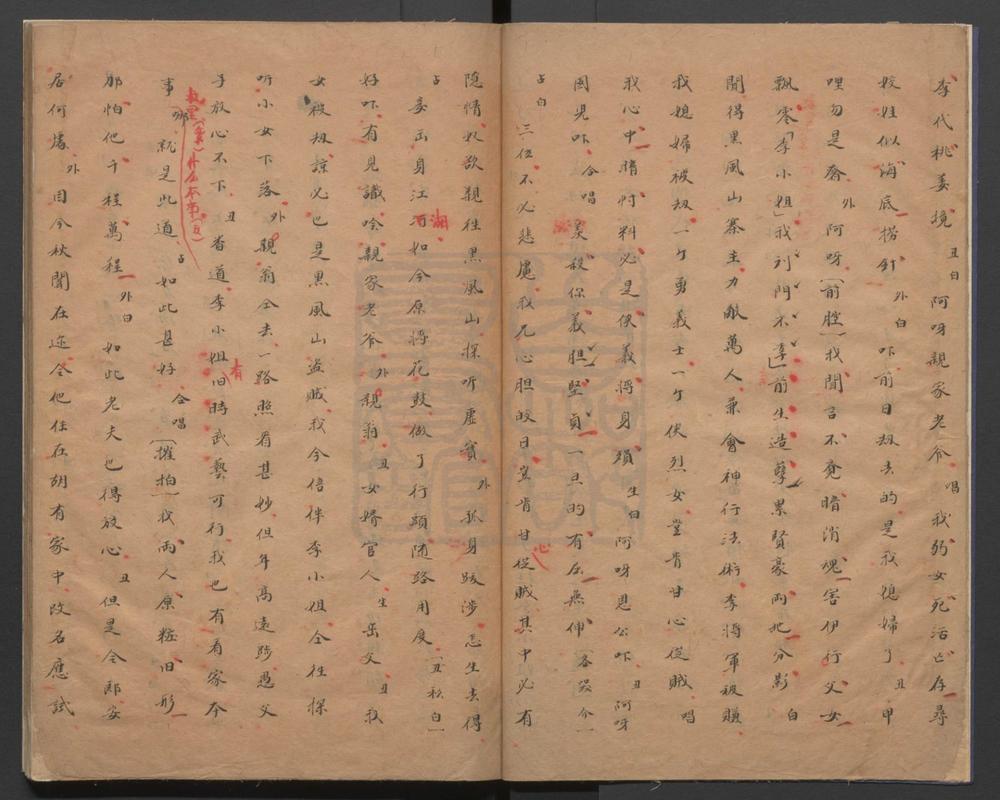 李代桃姜境 丑白 阿呀親家老爷 唱 我弱女死活亡存尋
姣娃似海底撈針 外白 吓前日刼去的是我媳婦了 丑 甲
哩勿是 外 阿呀 前腔 我聞言不竟暗消魂害伊行父女
飄零 李小姐 我列門不幸 前生造孽累賢豪兩地分影 白
聞得黑風山寨主力敵萬人兼會神行法術李將軍被賺
我媳婦被刼一个勇義士一个侠烈女豈肯甘心從賊 唱
我心中暗忖料必是侠義將身殞 生白 阿呀恩公吓 丑 阿呀
囡児吓 合唱 羙殺你義胆堅貞一旦的有屈無伸 各哭介
占白 三位不必悲慮我兄心胆皎日豈肯甘心從賊其中必有
隨情奴欲親往黑風山探听虚實 外 孤身跋涉怎生去得
占 妾出身江湖如今原將花鼓做了行頭随路用度 丑 私白
好吓有見識唅親家老爷 外 親翁 丑 女婿官人 生 岳父 丑 我
女被刼諒必也是黑風山盗贼我今倍伴李小姐仝往探
听小女下落 外 親翁仝去一路照看甚妙但年高遠陟愚父
子放心不下 丑 沓道李小姐有旧時武藝可行我也有看家本
事 哪 就是此道 占 如此甚好 合唱 催拍 我兩人原粧旧形
那怕他千程萬程 外白 如此老夫也得放心 丑 但是令郎安
居何處 外 目今秋闈在迩令他住在胡有家中改名應試